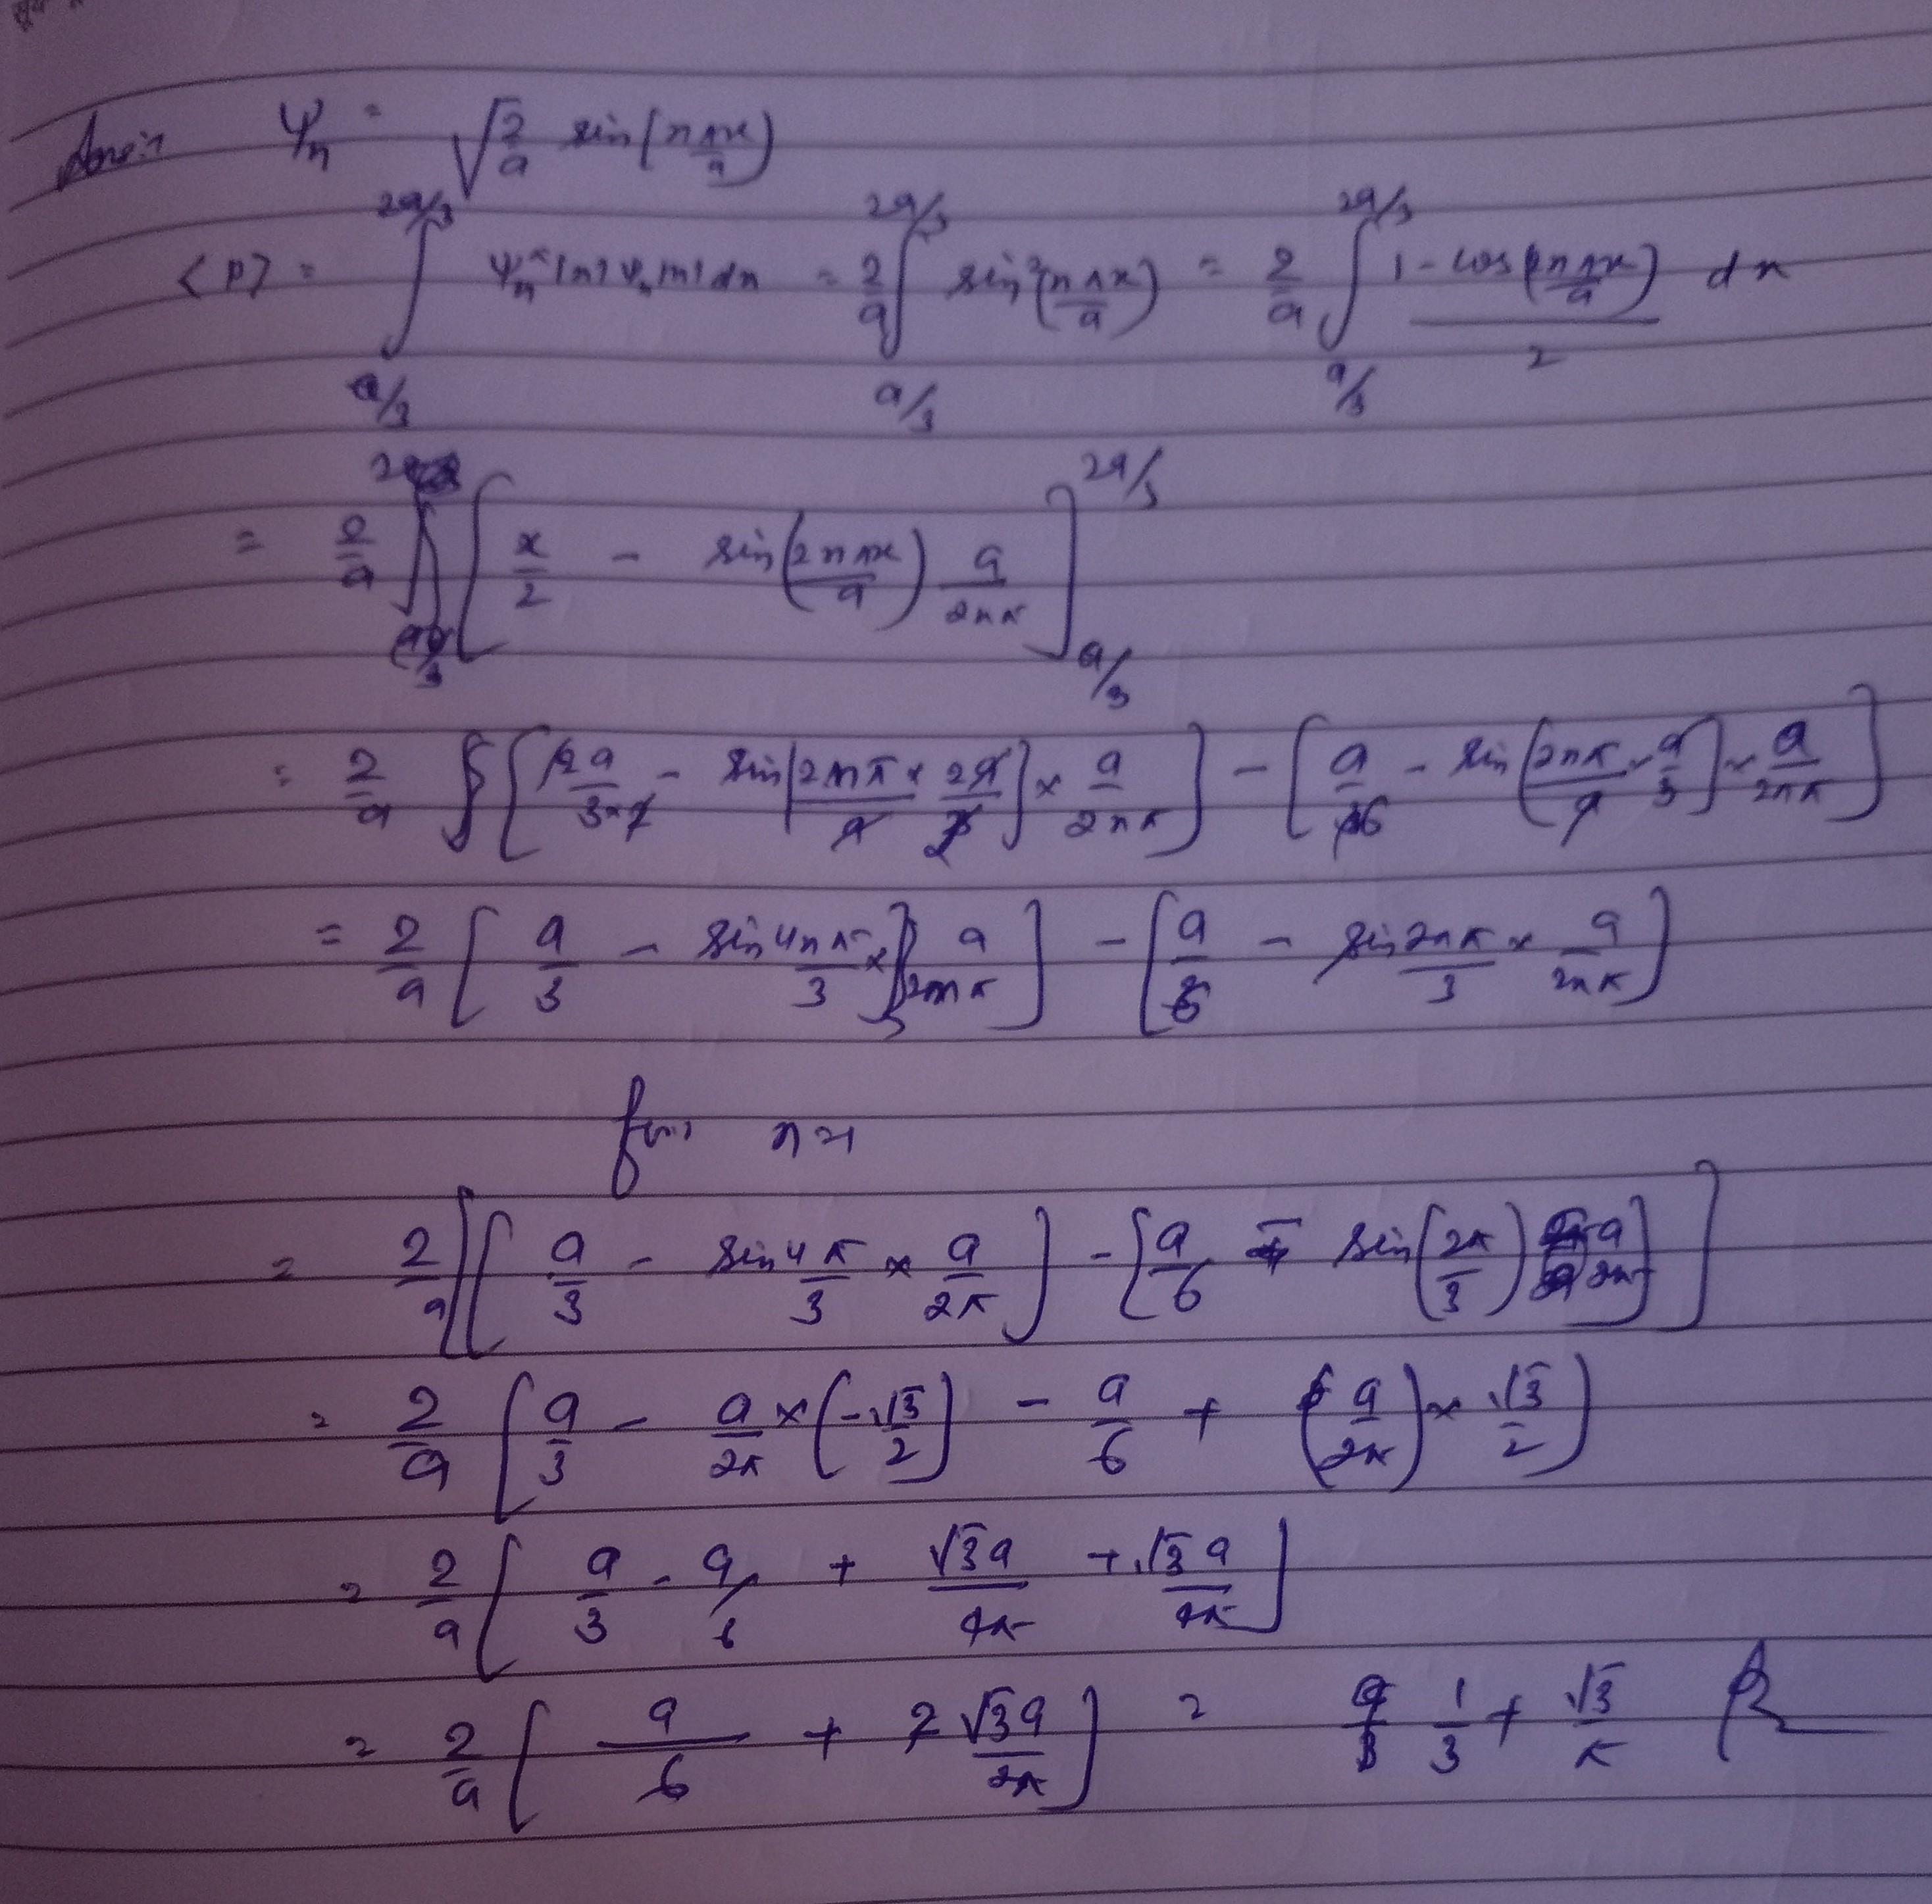 Ans:- ψn = √(2/a) sin(nπx/a)
<P> = ∫_{a/3}^{2a/3} ψn*(x) ψn(x) dx = 2/a ∫_{a/3}^{2a/3} sin²(nπx/a) = 2/a ∫_{a/3}^{2a/3} (1 - cos(2nπx/a))/2 dx
= 2/a [x/2 - sin(2nπx/a) a/2nπ]_{a/3}^{2a/3}
= 2/a {[2a/3×2 - sin[2nπ/a × 2a/3] × a/2nπ] - [a/6 - sin[2nπ/a × a/3] × a/2nπ]
= 2/a [a/3 - sin 4nπ/3 × a/2nπ] - [a/6 - sin 2nπ/3 × a/2nπ]
for n=1
= 2/a [[a/3 - sin 4π/3 × a/2π] - [a/6 - sin(2π/3) a/2π]]
= 2/a [a/3 - a/2π × (-√3/2) - a/6 + (a/2π) × √3/2]
= 2/a [a/3 - a/6 + √3a/4π + √3a/4π]
= 2/a [a/6 + √3a/2π] = 1/3 + √3/π